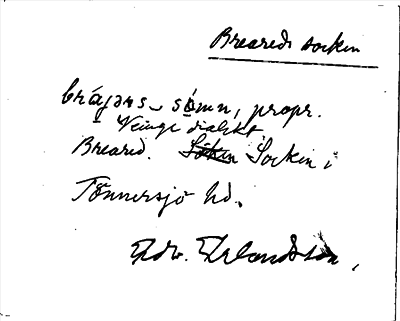 Breareds socken
brájərs- sómn, propr.
Veinge dialekt
Breared. Socken i
Tönnersjö hd.
Edw. Erlandsson,